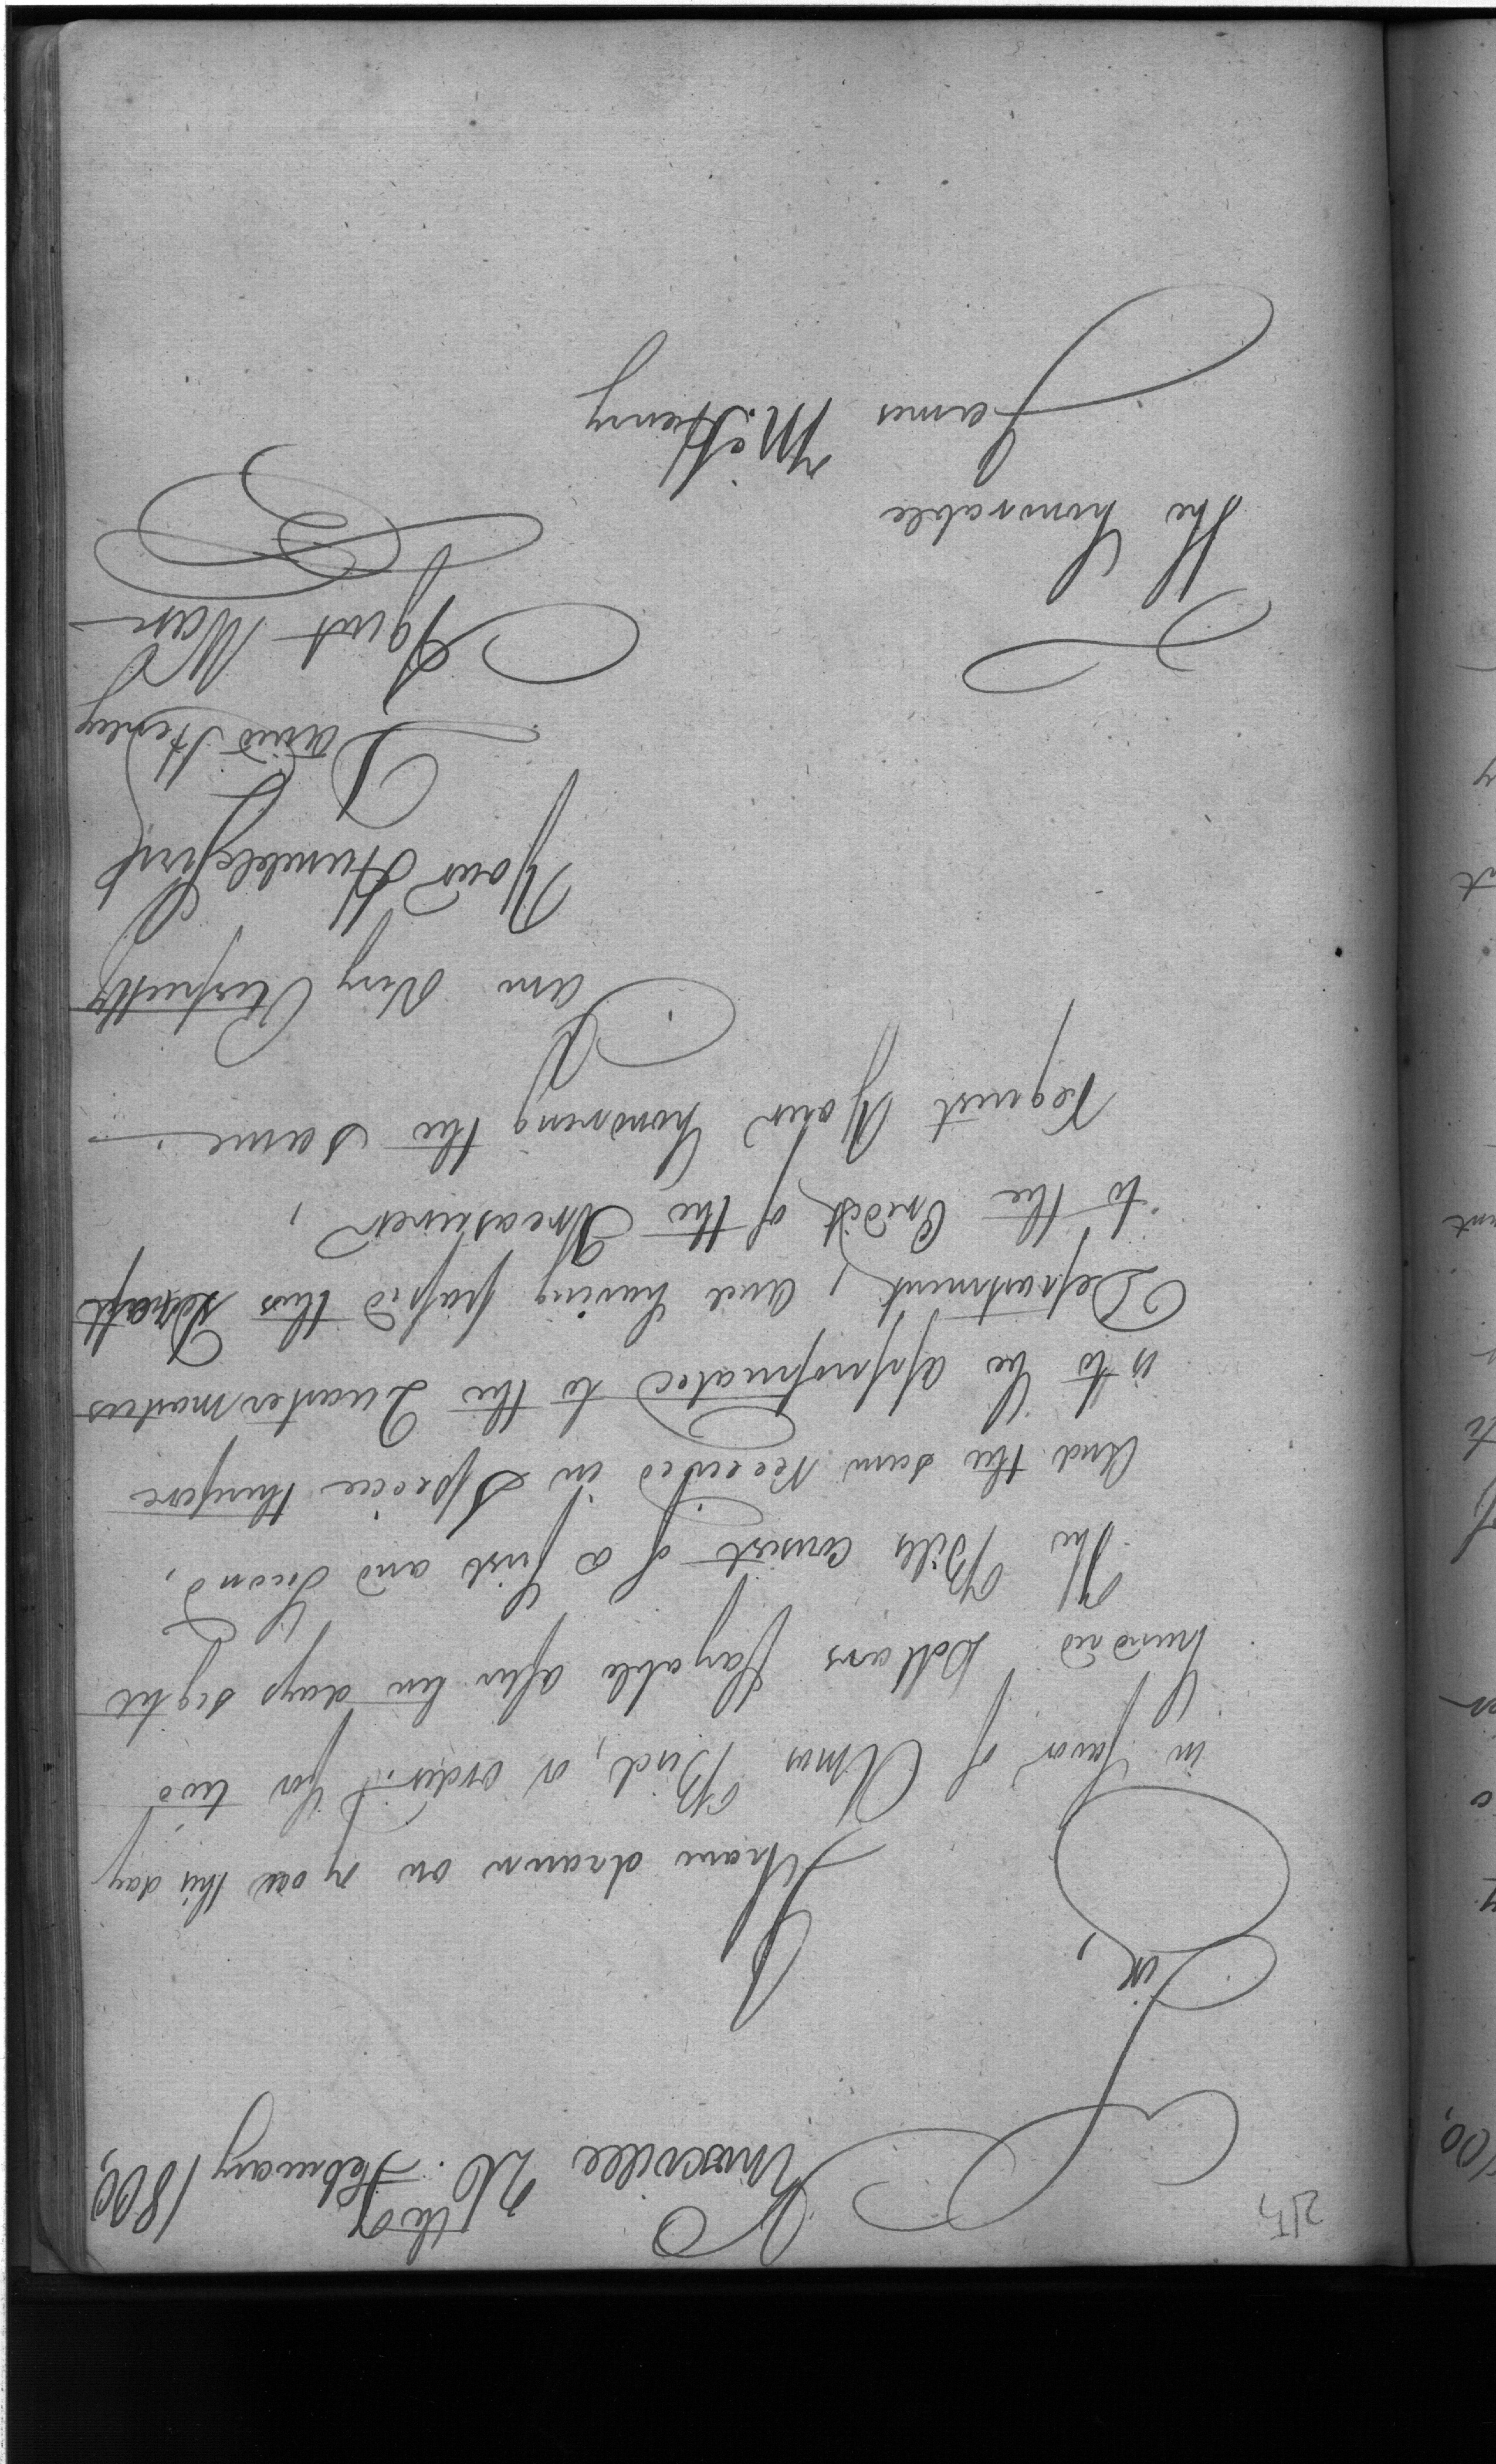 215
Knoxville 26th February 1800,
Sir,
I have drawn on you this day
in favor of Amos Bird, or order. for two
hundred Dollars payable after ten days sight
The Bills consist of a first and Second,
And the sum Received in Specie therefore
is to be appropriated to the Quartermasters
Department, and having passed this Draft
to the Credit of the Treasurer,
request Your honoring the same.
I am Very Respectfully
Your Humble Servt
David Henley
Agent War
The honorable
James McHenry